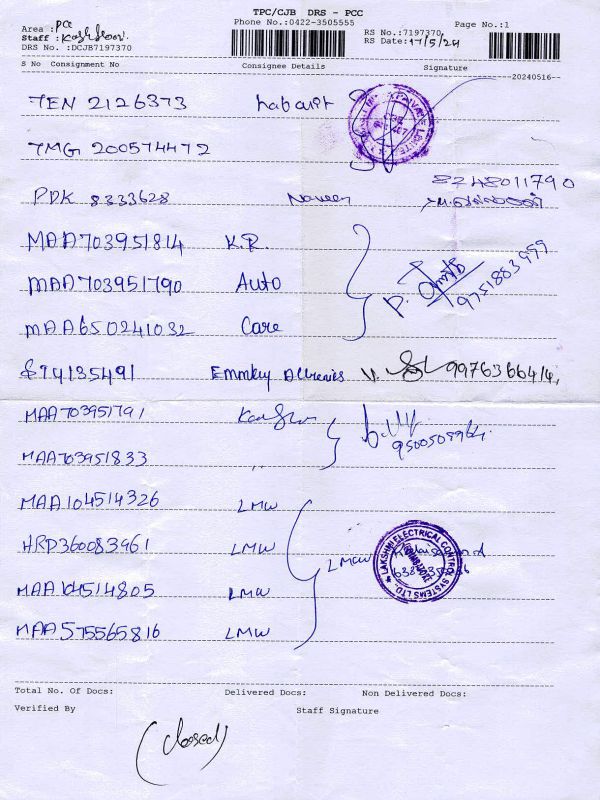 TPC/CJB DRS - PCC
Phone No.:0422-3505555
Page No.:1
Area : PCC
Staff :
RS No.:7197370
RS Date: 17/5/24
DRS No. :DCJB7197370
S No Consignment No Consignee Details Signature
--20240516--
TEN 2126373
TMG 200574472
8248011790
PDK 8333628 Naveen
MAA703951814 K.R.
MAA703951790 Auto
9751883999
MAA650241032 Care
874135491 Emmkey 9976366414,
MAA703951791
MAA703951833 "
MAA104514326 LMW
HRD360083961 LMW LMW
LAKSHMI ELECTRICAL CONTROL SYSTEMS LTD.
MAA104514805 LMW
MAA575565816 LMW
Total No. Of Docs: Delivered Docs: Non Delivered Docs:
Verified By Staff Signature
(closed)